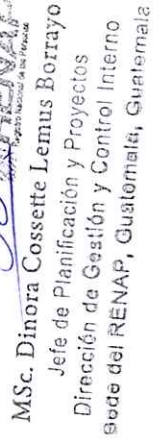 RENAP
Registro Nacional de las Personas
MSc. Dinora Cossette Lemus Borrayo
Jefe de Planificación y Proyectos
Dirección de Gestión y Control Interno
Sede del RENAP, Guatemala, Guatemala